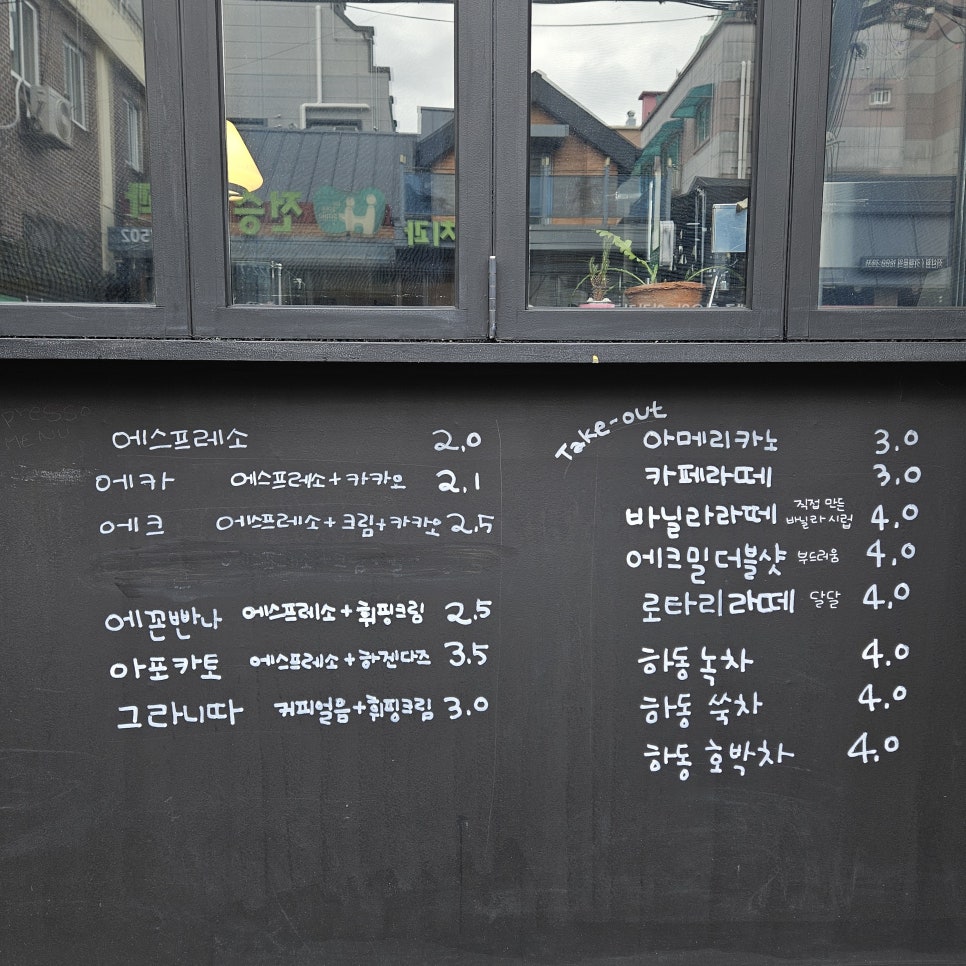 에스프레소 2.0
에카 에스프레소+카카오 2.1
에크 에스프레소+크림+카카오 2.5
에꼰빤나 에스프레소+휘핑크림 2.5
아포카토 에스프레소+하겐다즈 3.5
그라니따 커피얼음+휘핑크림 3.0
Take-out
아메리카노 3.0
카페라떼 3.0
바닐라라떼 직접 만든 바닐라 시럽 4.0
에크밀더블샷 부드러움 4.0
로타리라떼 달달 4.0
하동녹차 4.0
하동 쑥차 4.0
하동 호박차 4.0